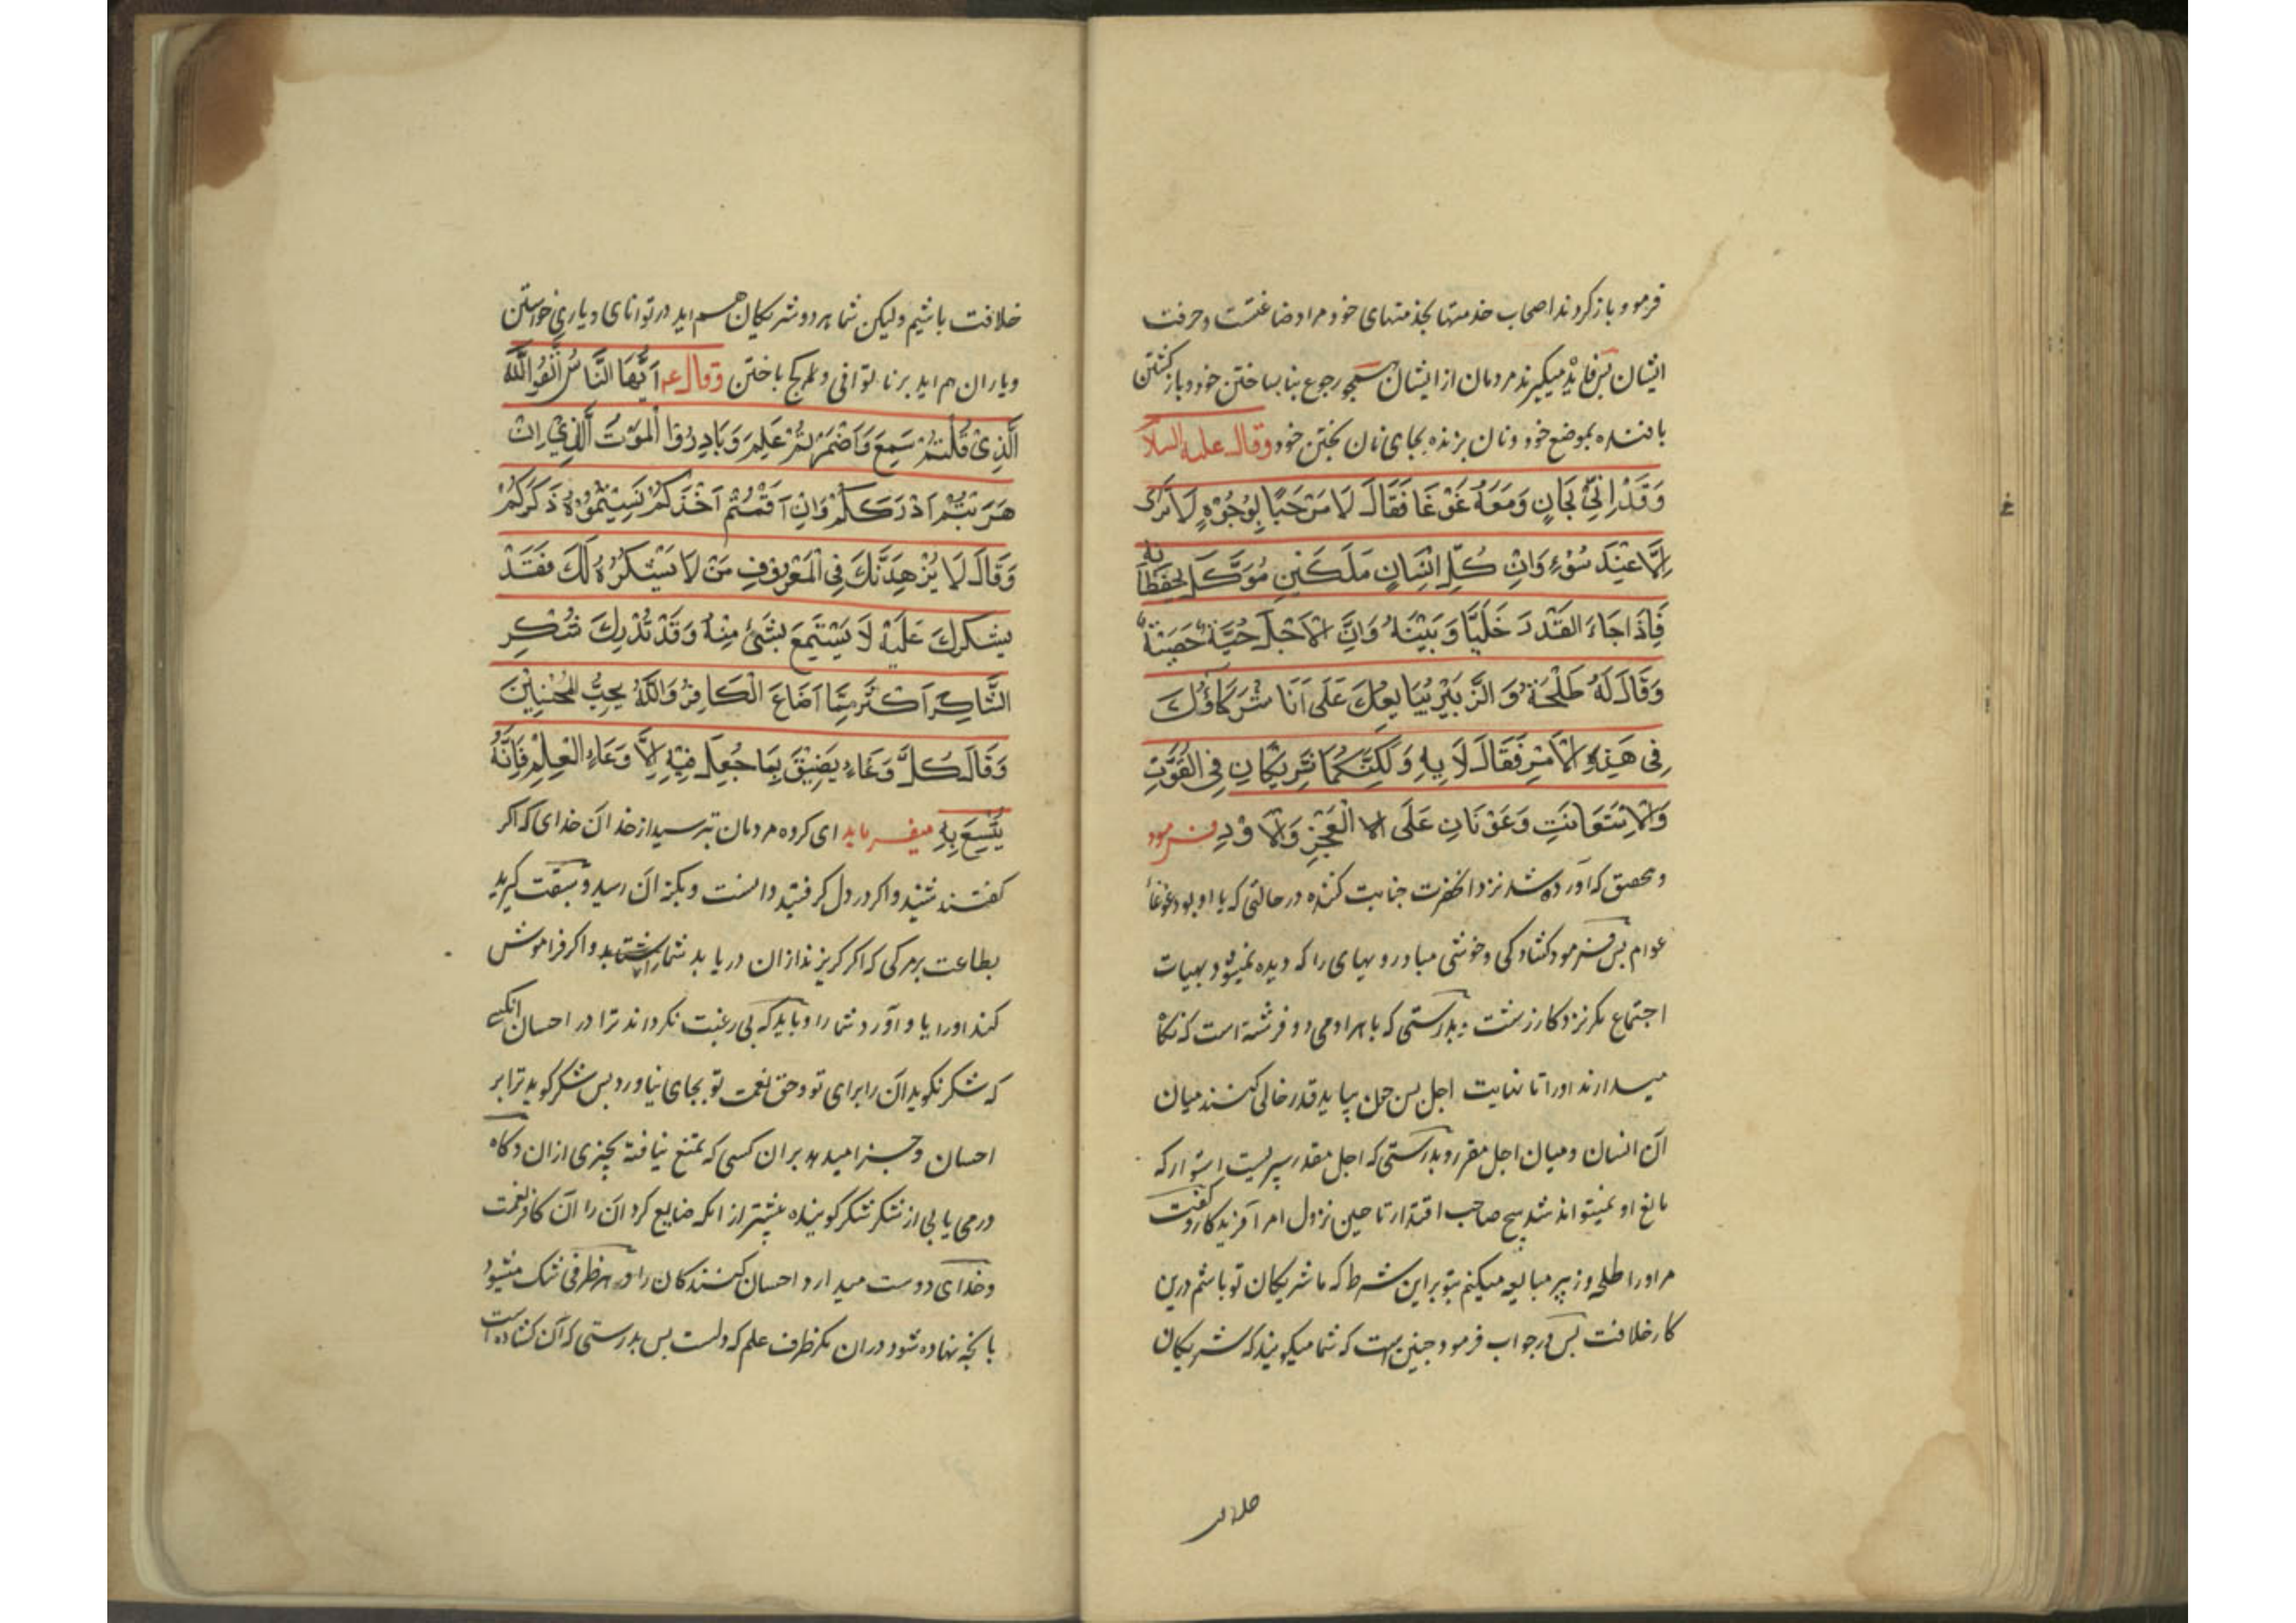 فرمود و باز کردند اصحاب خدمتها بخدمتهای خود مراد ضاعت و حرفت
ایشان بس فایده میکیرند مردمان از ایشان همچو رجوع بنا بساختن خود و بازکشتن
بافنده بموضع خود و نان برنده بجای نان پختن خود وقال علیه السلام
وَقَدْ اُتِیَ بِجَانٍ وَمَعَهُ غَوْغَا فَقَالَ لَا مَرْحَبًا بِوُجُوْهٍ لَا تُرَی
اِلَّا عِنْدَ سُوْءٍ وَاِنَّ کُلِّ اِنْسَانٍ مَلَکَیْنِ مُوَکَّلَ یَحْفِظَانِهِ
فَاِذَا جَاءَ القَدْرَ خَلَیَّا وَبَیْنَهُ وَاِنَّ الْاَجَلَ جُنَّةٌ حَصِیْنَةٌ
وَقَالَ لَهُ طَلْحَةُ وَالزُّبَیْرُ نُبَایِعُکَ عَلَی اَنَا شُرَکَاؤُکَ
فِی هَذِهِ الْاَمْرِ فَقَالَ لَا بِهِ وَلَکِنَّکُمَا شَرِیْکَانِ فِی القُوَّةِ
وَالْاِسْتَعَانَتِ وَعَوْنَانِ عَلَی الا الْعَجْزِ وَالْاَوْدِ فرمود
و تحقیق که آورده شد نزد آنحضرت جنایت کننده در حالتی که با او بود غوغاء
عوام بس فرمود کشادکی و خوشی مباد رویهای را که دیده نمیشود بهیات
اجتماع مکر نزد کار زشت و بدرستی که با هر ادمی دو فرشته است که نکاه
میدارند او را تا نهایت اجل بس چون بیاید قدر خالی کنند میان
آن انسان و میان اجل مقرر و بدرستی که اجل مقدر سپریست استوار که
مانع او نمیتواند شد هیچ صاحب اقتدار تا حین نزول امر آفریدکار و کفت
مر او را طلحه و زبیر مبایعه میکنم بتو براین شرط که ما شریکان تو باشم درین
کار خلافت بس در جواب فرمود چنین نیست که شما میکویند که شریکان
خلافت باشیم ولیکن شما هر دو شریکان هم اید در توانای و یاری خواستن
و یاران هم اید بر ناتوانی و کج باختن وقال عم اَیُّهَا النَّاسُ اتَّقُوا اللّٰهَ
الَّذِیْ قُلْتُمْ سَمِعَ وَاَضْمَرْتُمْ عَلِمَ وَبَادِرُوْا الْمَوْتَ الَّذِیْ اِنْ
هَرَبْتُمْ اَدْرَکَکُمْ وَاِنْ اَقَمْتُمْ اَخَذَکُمْ نَسِیْتُمُوْهُ ذَکَرَکُمْ
وَقَالَ لَا یُزْهِدَنَّکَ فِی الْمَعْرُوفِ مَنْ لَا یَشْکُرُهُ لَکَ فَقَدْ
یشکرک عَلَیْهُ لَا یَسْتَمِعَ بِشَیْءٍ مِنْهُ وَقَدْ تُدْرِکَ شُکْرِ
الشَّاکِرِ اَکْثَرَ مِمَّا اَضَاعَ الْکَافِرُ وَاللّٰهُ یُحِبُّ المُحْسِنِیْنَ
وَقَالَ کُلَّ وَعَاءٍ یَضِیْقَ بِمَا جُعِلَ فِیْهِ اِلَّا وَعَاءِ الْعِلْمِ فَاِنَّهُ
یُتَّسِعَ بِهِ میفرماید ای کروه مردمان بترسید از خدا آن خدای که اکر
کفتید شنید و اکر در دل کرفتید دانست و سبقت کیرید
بطاعت بر مرکی که اکر کریزند از ان دریابد شما را و اکر فراموش
کنند او را یاد آورد شما را و باید که بی رغبت نکرداند ترا در احسان انکسی
که شکر نکوید آن را برای تو و حق نعمت تو بجای نیاورد بس شکر کوید ترا بر
احسان و جزا میدهد بر ان کسی که تمتع نیافته بچیزی از ان و کاه
در می یابی از شکر شکر کوینده بیشتر از انکه ضایع کرد آن را آن کافر نعمت
و خدای دوست میدارد احسان کنندکان را و هر ظرفی تنک میشود
بانچه نهاده شود در ان مکر ظرف علم که دلست بس بدرستی که آن کشاده است